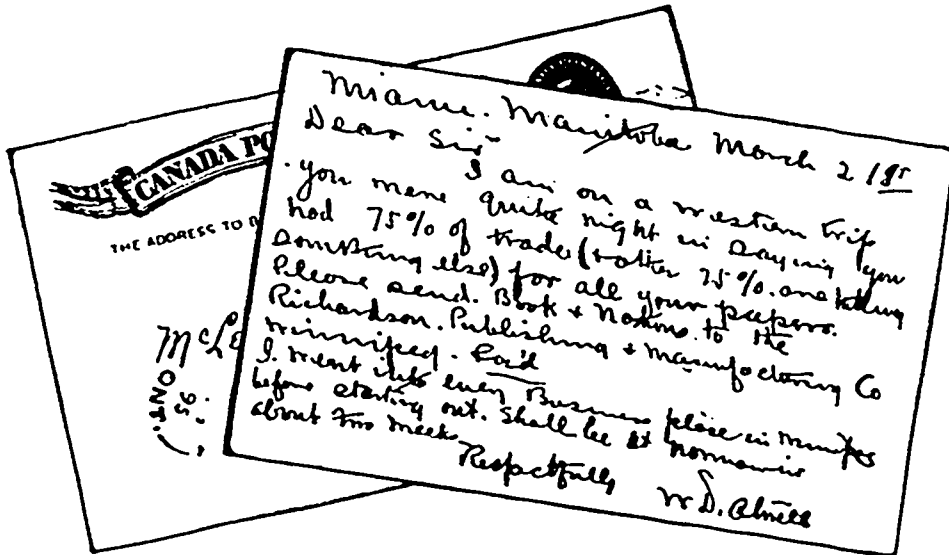 CANADA PO
THE ADDRESS TO B
McLe
ONT.
95
Miami. Manitoba March 2 1895
Dear Sir
I am on a western trip
you were quite right in saying you
had 75% of trade (rather 75% are taking
something else) for all your papers.
Please send. Book & Notions. to the
Richardson. Publishing & Manufacturing Co
Winnipeg.
I. went into every Business place in Winnipeg
before starting out. Shall be at
about two weeks
Respectfully
W D.